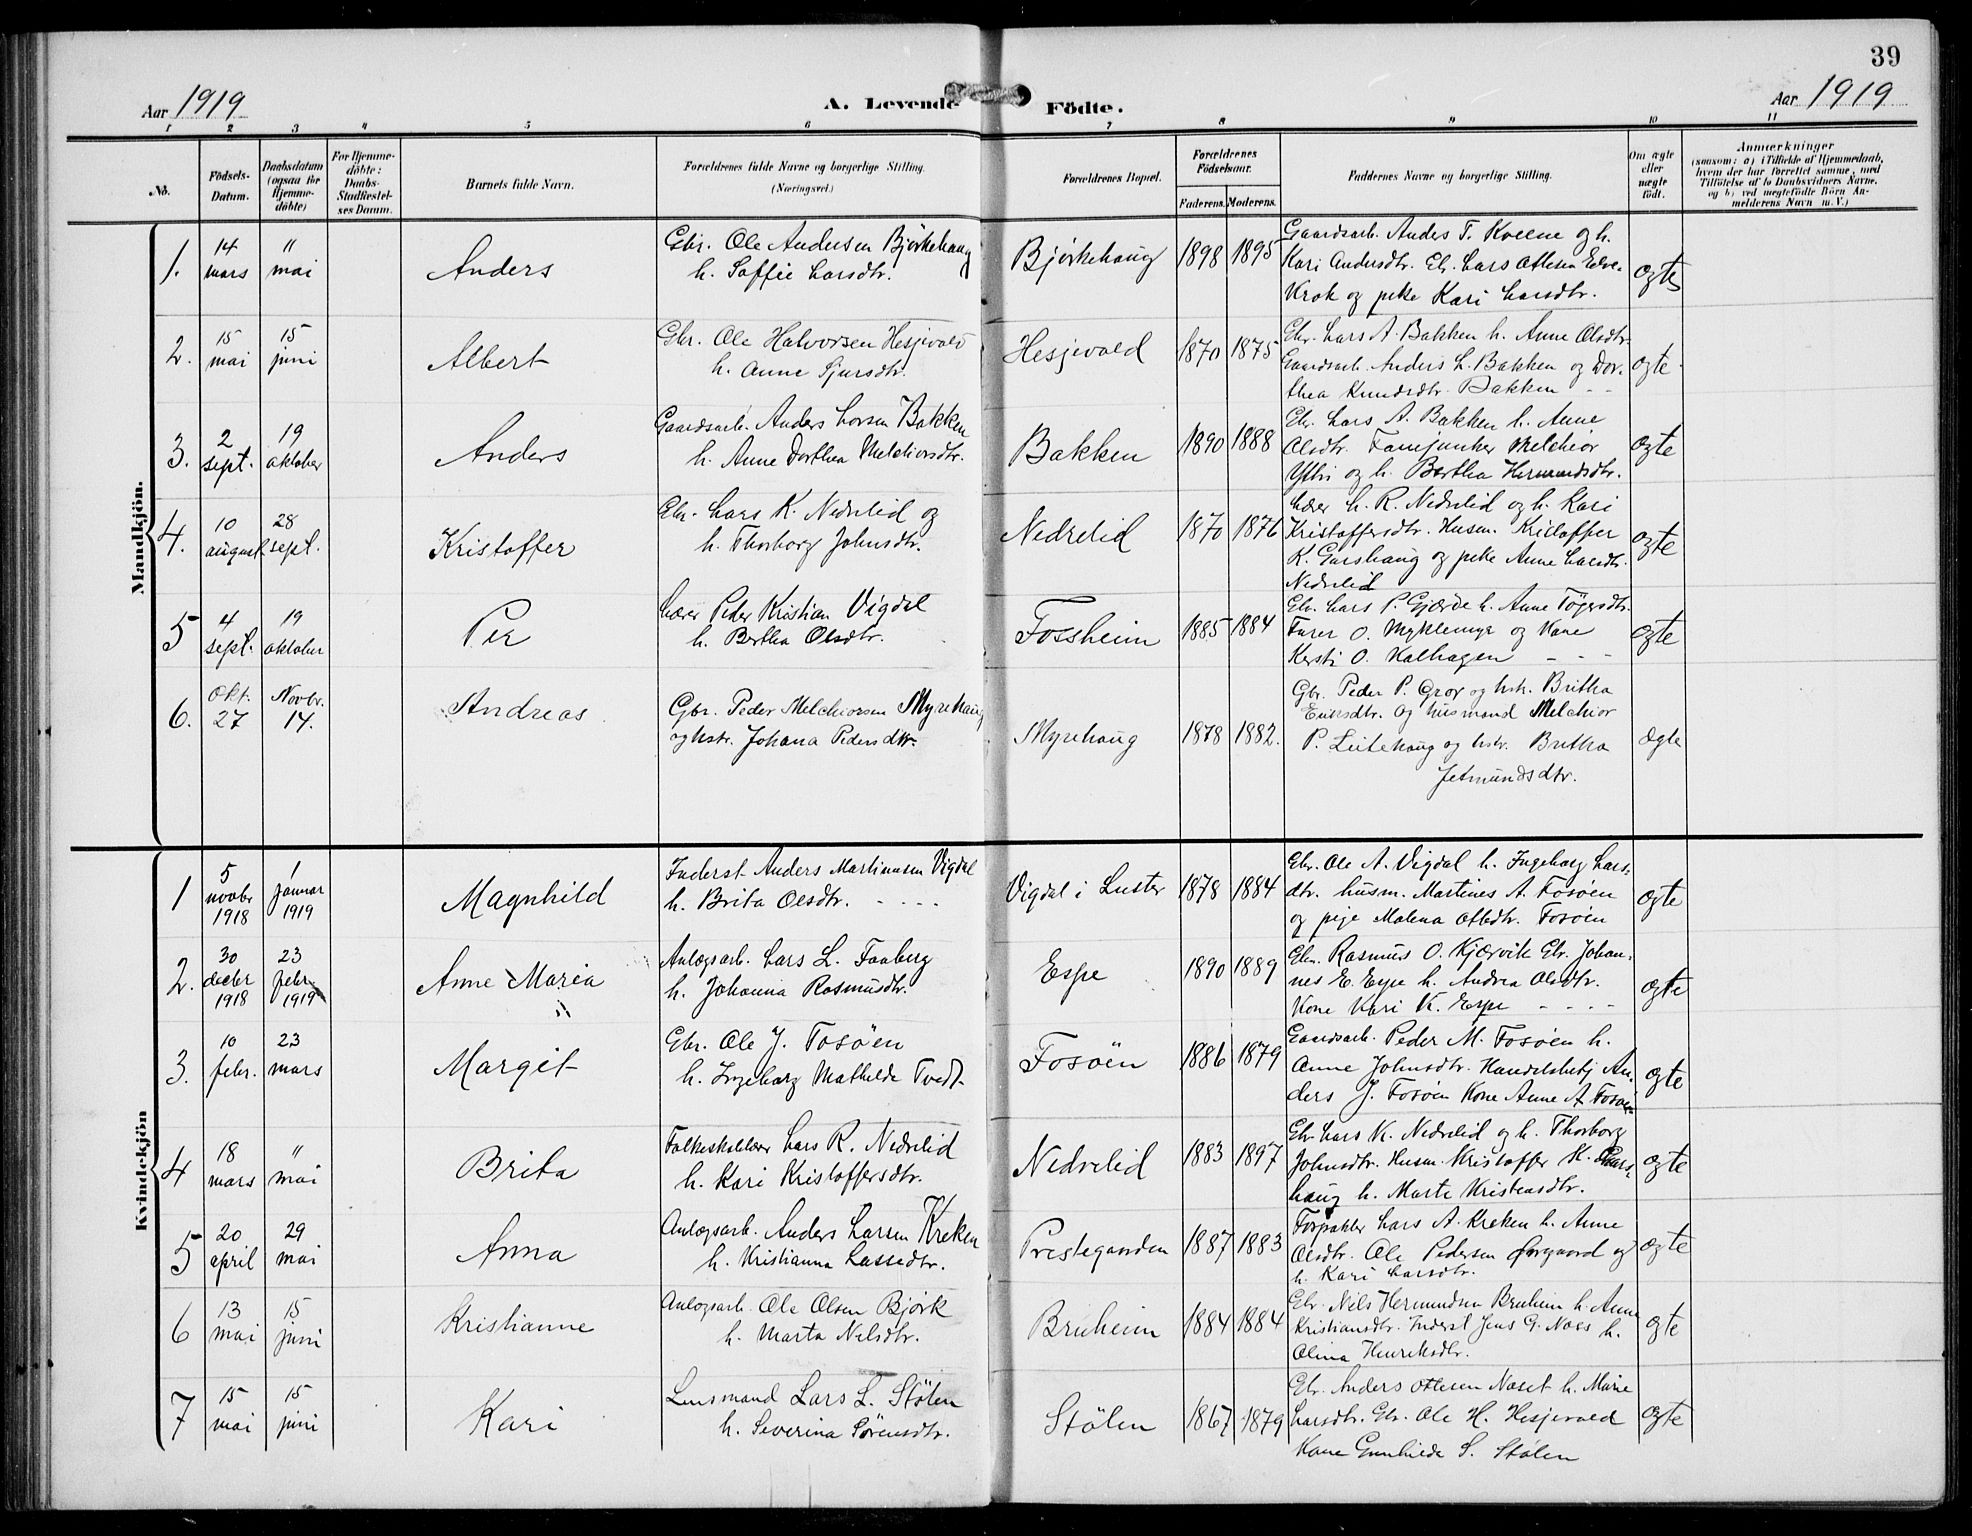 39
Aar 1919
A. Levende Födte.
Aar 1919
1 2 3 4 5 6 7 8 9 10 11
No.
Födsels-Datum.
Daabsdatum (ogsaa for Hjemmedöbte)
For Hjemmedöbte: Daabs-Stadfæstelses Datum.
Barnets fulde Navn.
Forældrenes fulde Navne og borgerlige Stilling. (Næringsvei.)
Forældrenes Bopæl.
Forældrenes Födselsaar.
Faderens. Moderens.
Faddernes Navne og borgerlige Stilling.
Om ægte eller uægte födt.
Anmærkninger
(saasom: a) i Tilfælde af Hjemmedaab, hvem der har forrettet samme, med Tilföielse af to Daabsvidners Navne, og b) ved uægtefödte Börn Anmelderens Navn m. V.)
Mandkjön.
1. 14 mars " mai Anders
Gbr. Ole Andersen Bjørkehaug
h. Soffie Larsdtr.
Bjørkehaug 1898 1895
Gaardsarb. Anders T. Kveene og h.
Kari Andersdtr. Gbr. Lars Ottesen Edve-
Krok og pike Kari Larsdtr.
ægte
2. 15 mai 15 juni Albert
Gbr. Ole Halvorsen Hesjevold
h. Anne Sjursdtr.
Hesjevold 1870 1875
Gbr. Lars A. Bakken h. Anne Olsdtr.
Gaardsarb. Anders L. Bakken og Dor-
thea Knudsdtr. Bakken - -
ægte
3. 2 sept. 19 oktober Anders
Gaardsarb. Anders Larsen Bakken
h. Anne Dorthea Melchiorsdtr.
Bakken 1890 1888
Gbr. Lars A. Bakken h. Anne
Olsdtr. Fanejunker Melchior
Yttri og h. Bertha Hermundsdtr.
ægte
4. 10 august 28 sept. Kristoffer
Gbr. Lars K. Nedrelid og
h. Thorborg Johnsdtr.
Nedrelid 1870 1876
Lærer L. R. Nedrelid og h. Kari
Kristoffersdtr. Husm. Kristoffer
K. Garshaug og pike Anne Larsdtr.
Nedrelid
ægte
5 4 sept. 19 oktober Per
Lærer Peder Kristian Vigdal
h. Bertha Olsdtr.
Fossheim 1885 1884
Gbr. Lars P. Gjærde h. Anne Tøgersdtr.
Furer O. Myklemyr og Kone
Kersti O. Kalhagen - - -
ægte
6. Okt. 27 Novbr. 14. Andreas
Gbr. Peder Melchiorsen Myrehaug
og hstr. Johana Pedersdtr.
Myrehaug 1878 1882.
Gbr. Peder P. Grov og hstr. Britha
Eriksdtr. og husmand Melchior
P. Leitehaug og hstr. Britha
Jetmundsdtr.
ægte
Kvindekjön
1 5 novbr 1918 1 januar 1919 Magnhild
Inderst Anders Martinusen Vigdal
h. Brita Olsdtr. - - - -
Vigdal i Luster 1878 1884
Gbr. Ole A. Vigdal h. Ingeborg Lars-
dtr. husm. Martines A. Fosøen
og pige Malena Ottedtr. Fosøen
ægte
2. 30 decbr 1918 23 febr. 1919 Anne Maria
Anlægsarb. Lars L. Faaberg
h. Johanna Rasmusdtr.
Espe 1890 1889
Gbr. Rasmus O. Kjærvik Gbr. Johan-
nes E. Espe h. Andrea Olsdtr.
Kone Kari K. Espe - - - -
ægte
3. 10 febr. 23 mars Margit
Gbr. Ole J. Fosøen
h. Ingeborg Mathilde Tvedt
Fosöen 1886 1879
Gaardsarb. Peder M. Fosøen h.
Anne Johnsdtr. Handelsbetj An-
ders J. Fosøen Kone Anne A Fosøen
ægte
4 18 mars " mai Brita
Folkeskolelærer Lars R. Nedrelid
h. Kari Kristoffersdtr.
Nedrelid 1883 1897
Gbr Lars K. Nedrelid og h. Thorborg
Johnsdtr. Husm. Kristoffer K. Gars-
haug h. Marte Kristensdtr.
ægte
5 20 april 29 mai Anna
Anlægsarb. Anders Larsen Kreken
h. Kristianna Lassedtr.
Prestegaarden 1887 1883
Forpakter Lars A. Kreken h. Anne
Olsdtr. Ole Pedersen Øvrgaard og
h. Kari Larsdtr.
ægte
6 13 mai 15 juni Kristianne
Anlægsarb. Ole Olsen Bjørk
h. Marta Nilsdtr.
Bruheim 1884 1884
Gbr. Nils Hermundsen Bruheim h. Anne
Kristiansdtr. Inderst Jens G. Naes h.
Olina Henriksdtr.
ægte
7 15 mai 15 juni Kari
Lensmand Lars L. Stölen
h. Severina Sörensdtr.
Stölen 1867 1879
Gbr. Anders Ottesen Naset h. Marie
Larsdtr. Gbr. Ole H. Hesjevold
Kone Gunhilda S. Stölen
ægte